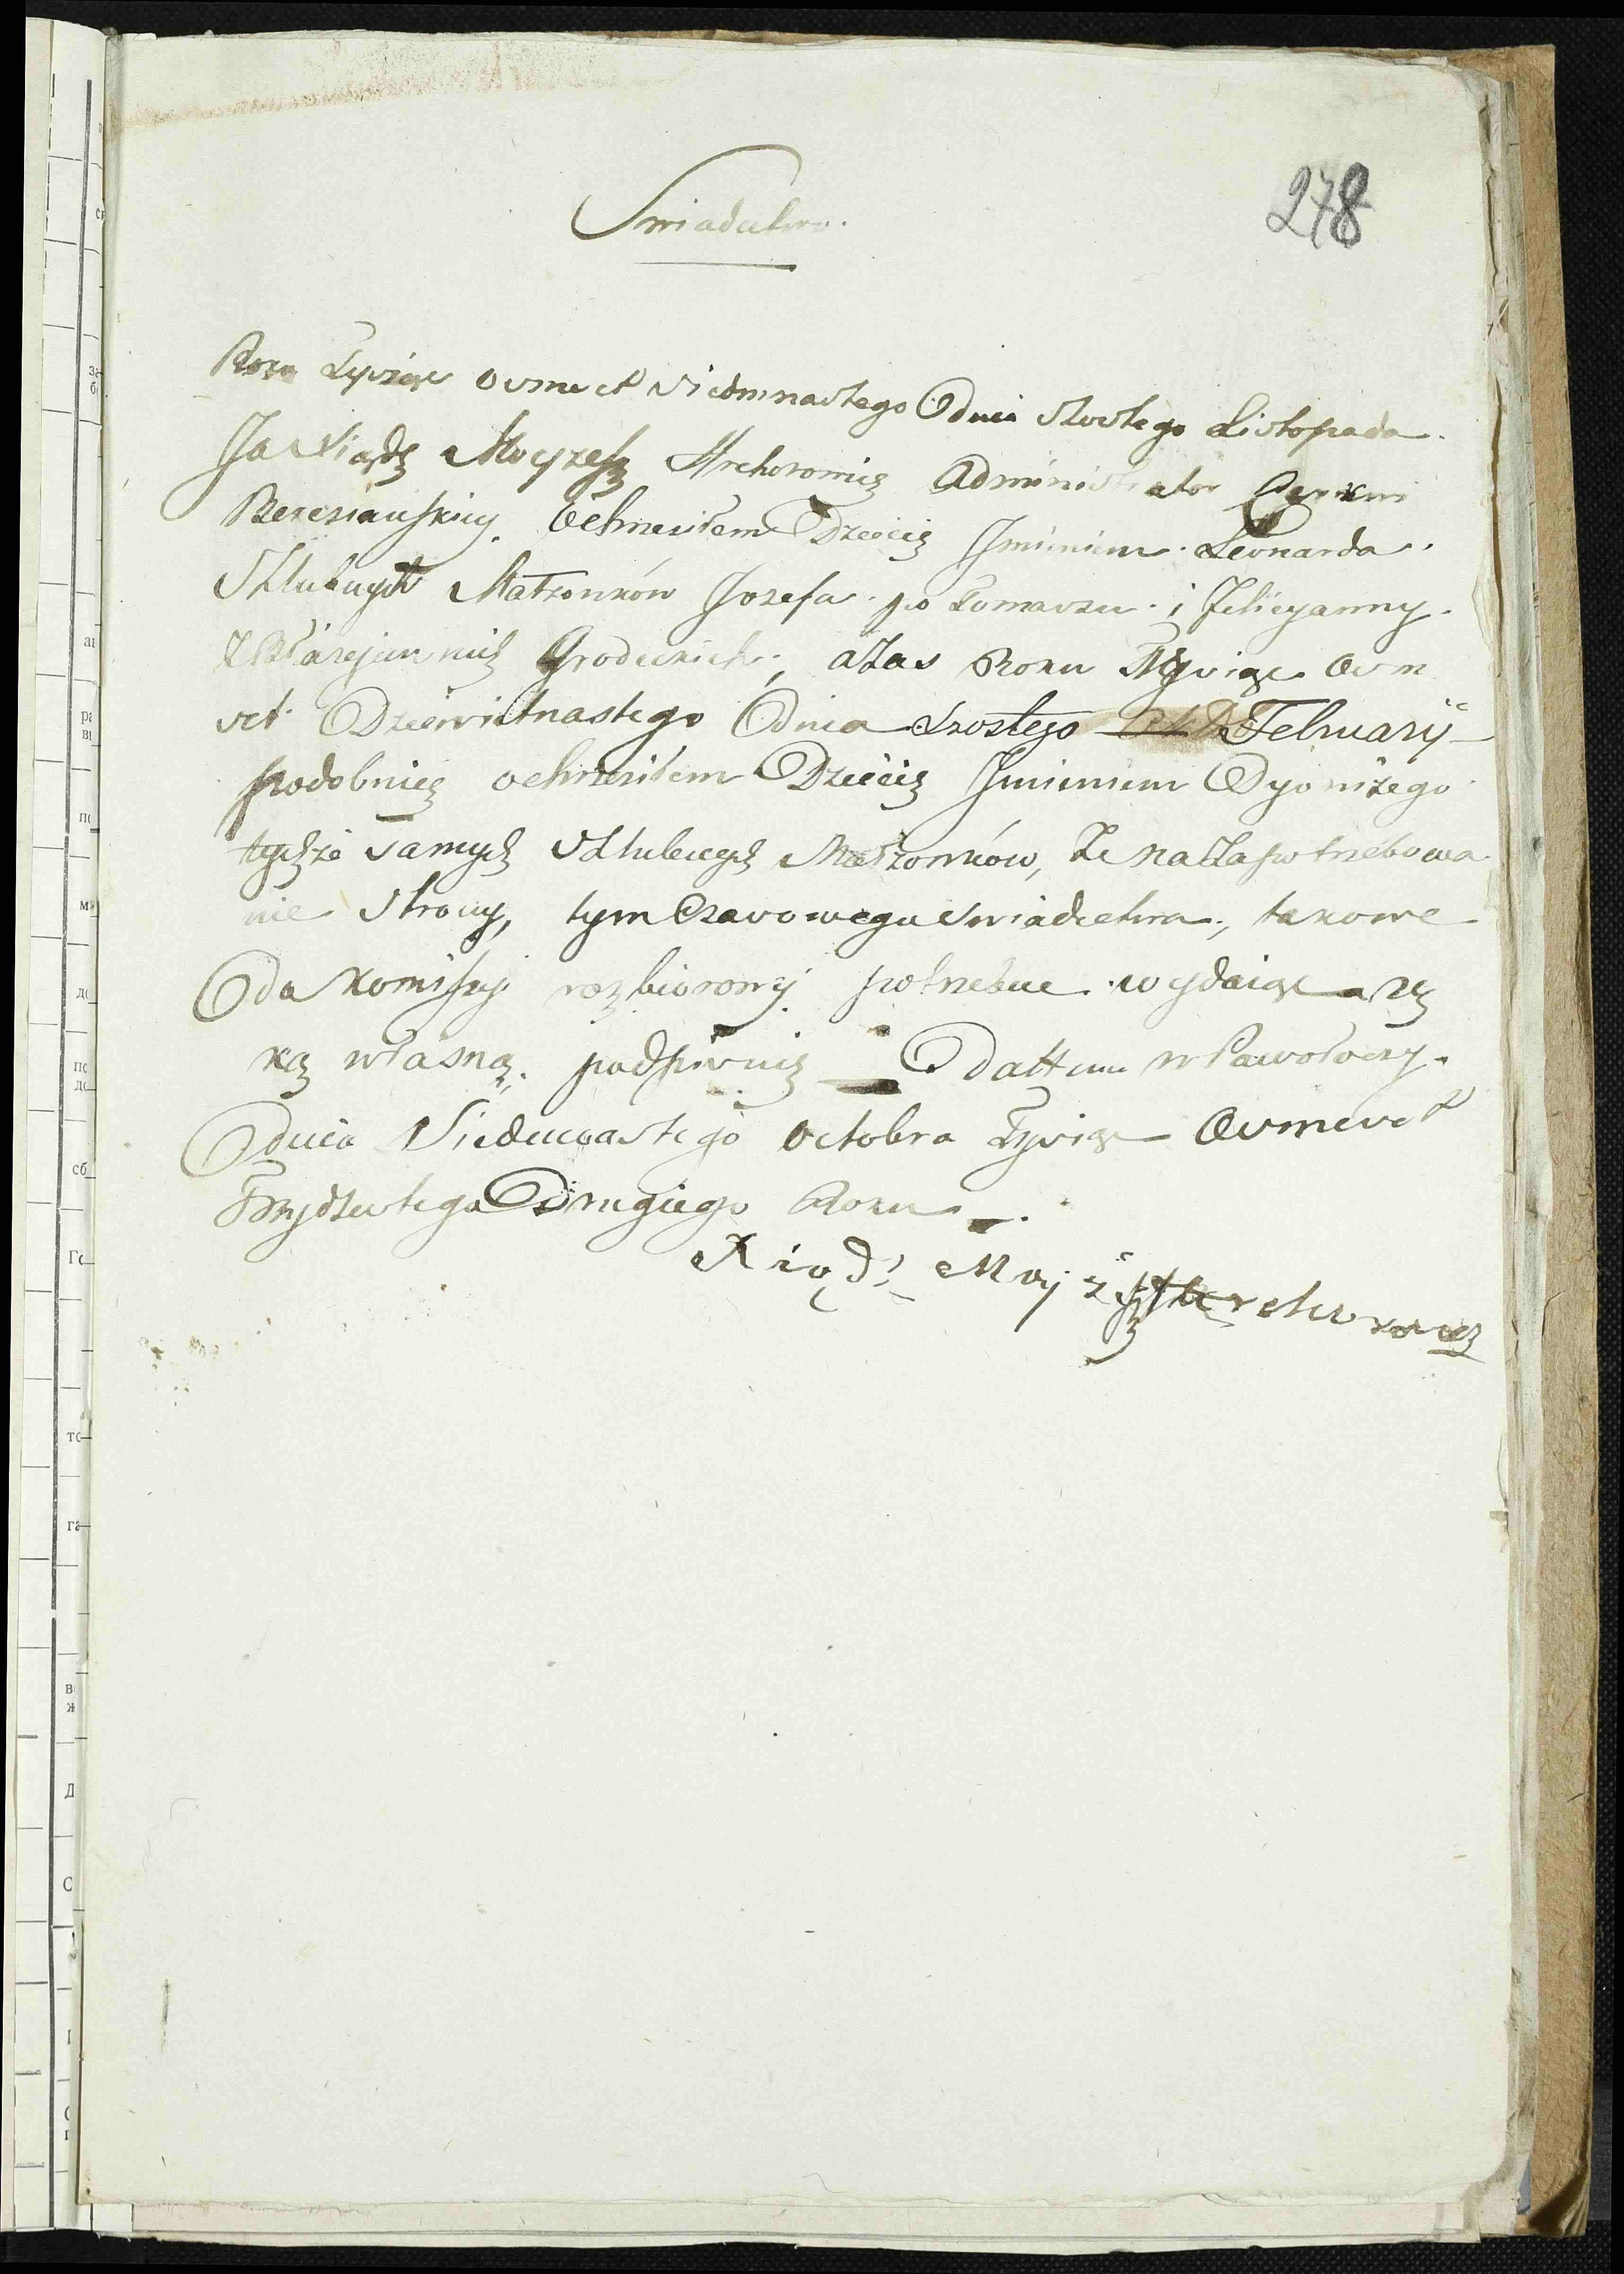 Swiadectwo.
278
Roku Tysiąc Osmset Siedmnastego Dnia Szostego Listopada.
Ja Xiądz Moyzesz Hrehorowicz Administrator Cerkwi
Berezianskiey. Ochrzciłem Dziecię Jmieniem. Leonarda.
Szlubnych Małzonków Jozefa. po Tomaszu. i Felicyanny.
Grodeckich, aZas Roku Tysiąc Osm
set Dziewietnastego Dnia Szostego February
podobnież ochrzciłem Dziecię Jmieniem Dyonizego
tychże samych Szlubnych Małzonków, Ze na Zapotrzebowa
nie Strony, tym Czasowego Swiadectwa, takowe
Do Komissyi rozbiorowy potrzebne. wydaiąc rę
ką własną. podpisuię Dattum w Pawołoczy.
Dnia Siedmnastego Octobra Tysiąc Osmeset
Trzydzestego Drugiego Roku.
Xiądz Moyżesz Hrehorowicz